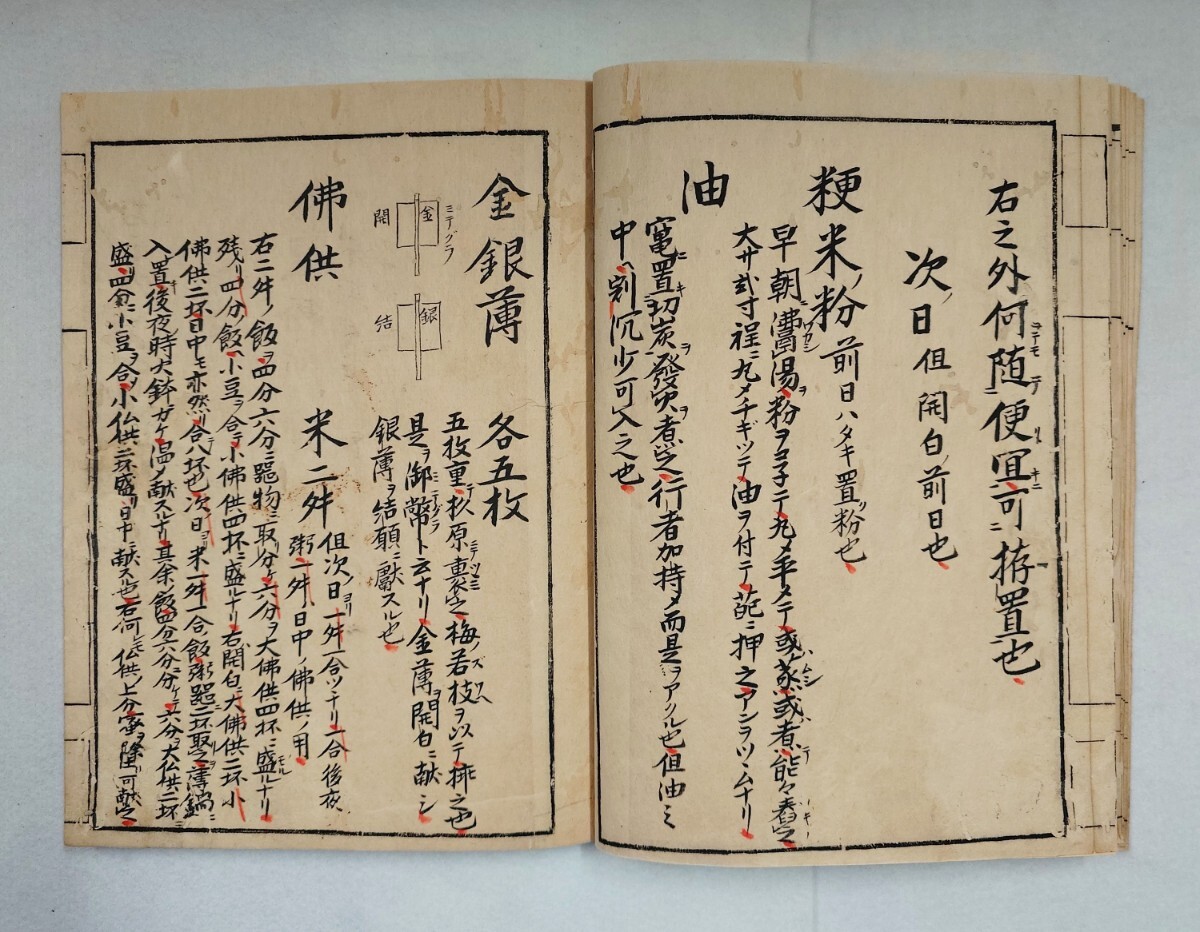 右之外何随便冝可拵置也
次ノ日但開白ノ前日也
粳米ノ粉 前日ハタキ置粉也
早朝ニ沸湯ヲ粉ヲコ子テ丸メ平メテ或ハ蒸或ハ煮テ能々舂之
大サ弐寸程ニ丸メチギツテ油ヲ付テ
押之アンヲツヽムナリ
油
竃ニ置切炭ヲ發火ヲ煮之行者加持メ而是ヲアクル也但油ミ
中ヘ沉少可入之也
金銀薄 各五枚
ミテグラ
金
開
銀
結
五枚重テ杦原裹之梅ノズハヘ若枝ヲ以テ挾之也
是ヲ御幣ト云ナリ金薄ヲ開白ニ献シ
銀薄ヲ結願ニ獻スル也
佛供 米二舛
但次ノ日ヨリ一舛一合ツヽナリ一合後夜
粥一舛ノ日中ノ佛供ノ用
右二舛ノ飯ヲ四分六分ニ器物ニ取リ分ケ六分ヲ大佛供四杯ニ盛ルナリ
残リ四分ノ飯ヘ小豆ヲ合テ小佛供四杯ニ盛ルナリ右開白ニ大佛供二坏小
佛供二坏日中モ亦然リ合八坏也次日ヨリ米一舛一合飯粥器二坏取之薄鍋ニ
入置後夜時火鉢ガケ温メ献スルナリ其余ノ飯四分六分ニ分ケテ六分ヲ大仏供二坏
盛四分ニ小豆ヲ合メ小仏供二坏盛リ日中ニ献ス也右何レモ仏供ノ上分